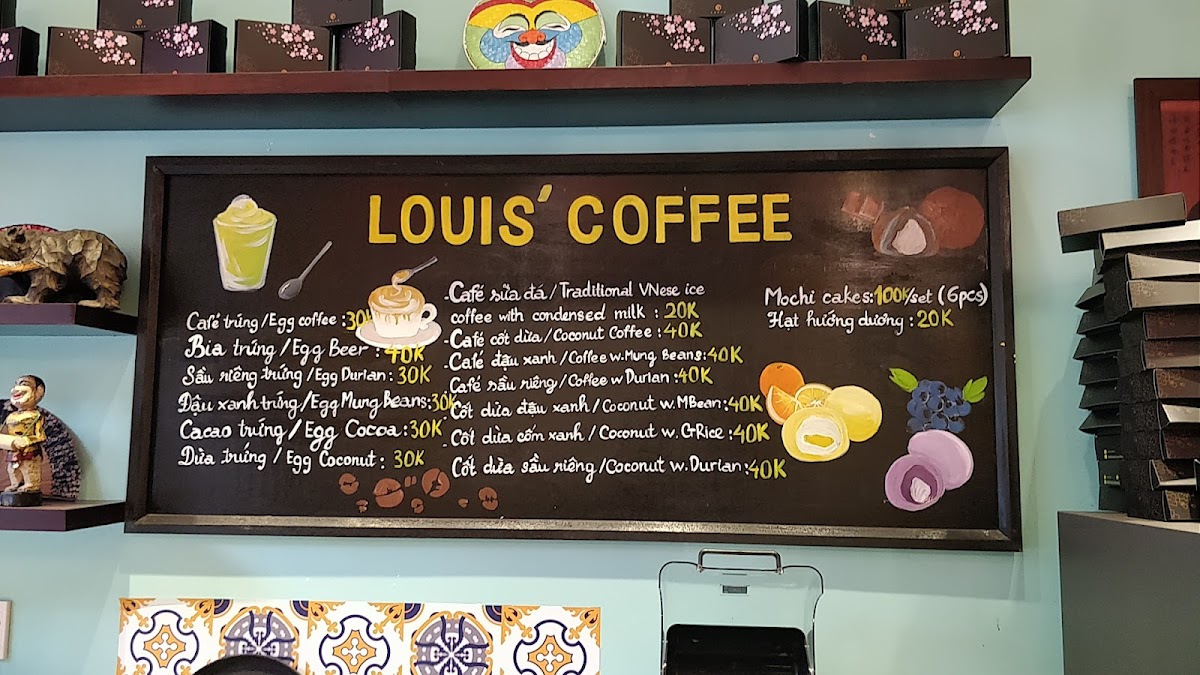 LOUIS' COFFEE
Café trứng/Egg coffee:30K
Bia trứng/Egg Beer : 40K
Sầu riêng trứng/Egg Durian: 30K
Đậu xanh trứng/Egg Mung Beans:30K
Cacao trứng/Egg Cocoa:30K
Dừa trứng/Egg Coconut: 30K
-Café sữa đá/Traditional VNese ice
coffee with condensed milk : 20K
-Café cốt dừa/Coconut Coffee: 40K
-Café đậu xanh/Coffee w.Mung Beans:40K
Café sầu riêng/Coffee w Durian :40K
-Cốt dừa đậu xanh/Coconut w.MBean:40K
-Cốt dừa cốm xanh/Coconut w.GRice:40K
-Cốt dừa sầu riêng/Coconut w.Durian:40K
Mochi cakes:100K/set (6pcs)
Hạt hướng dương : 20K